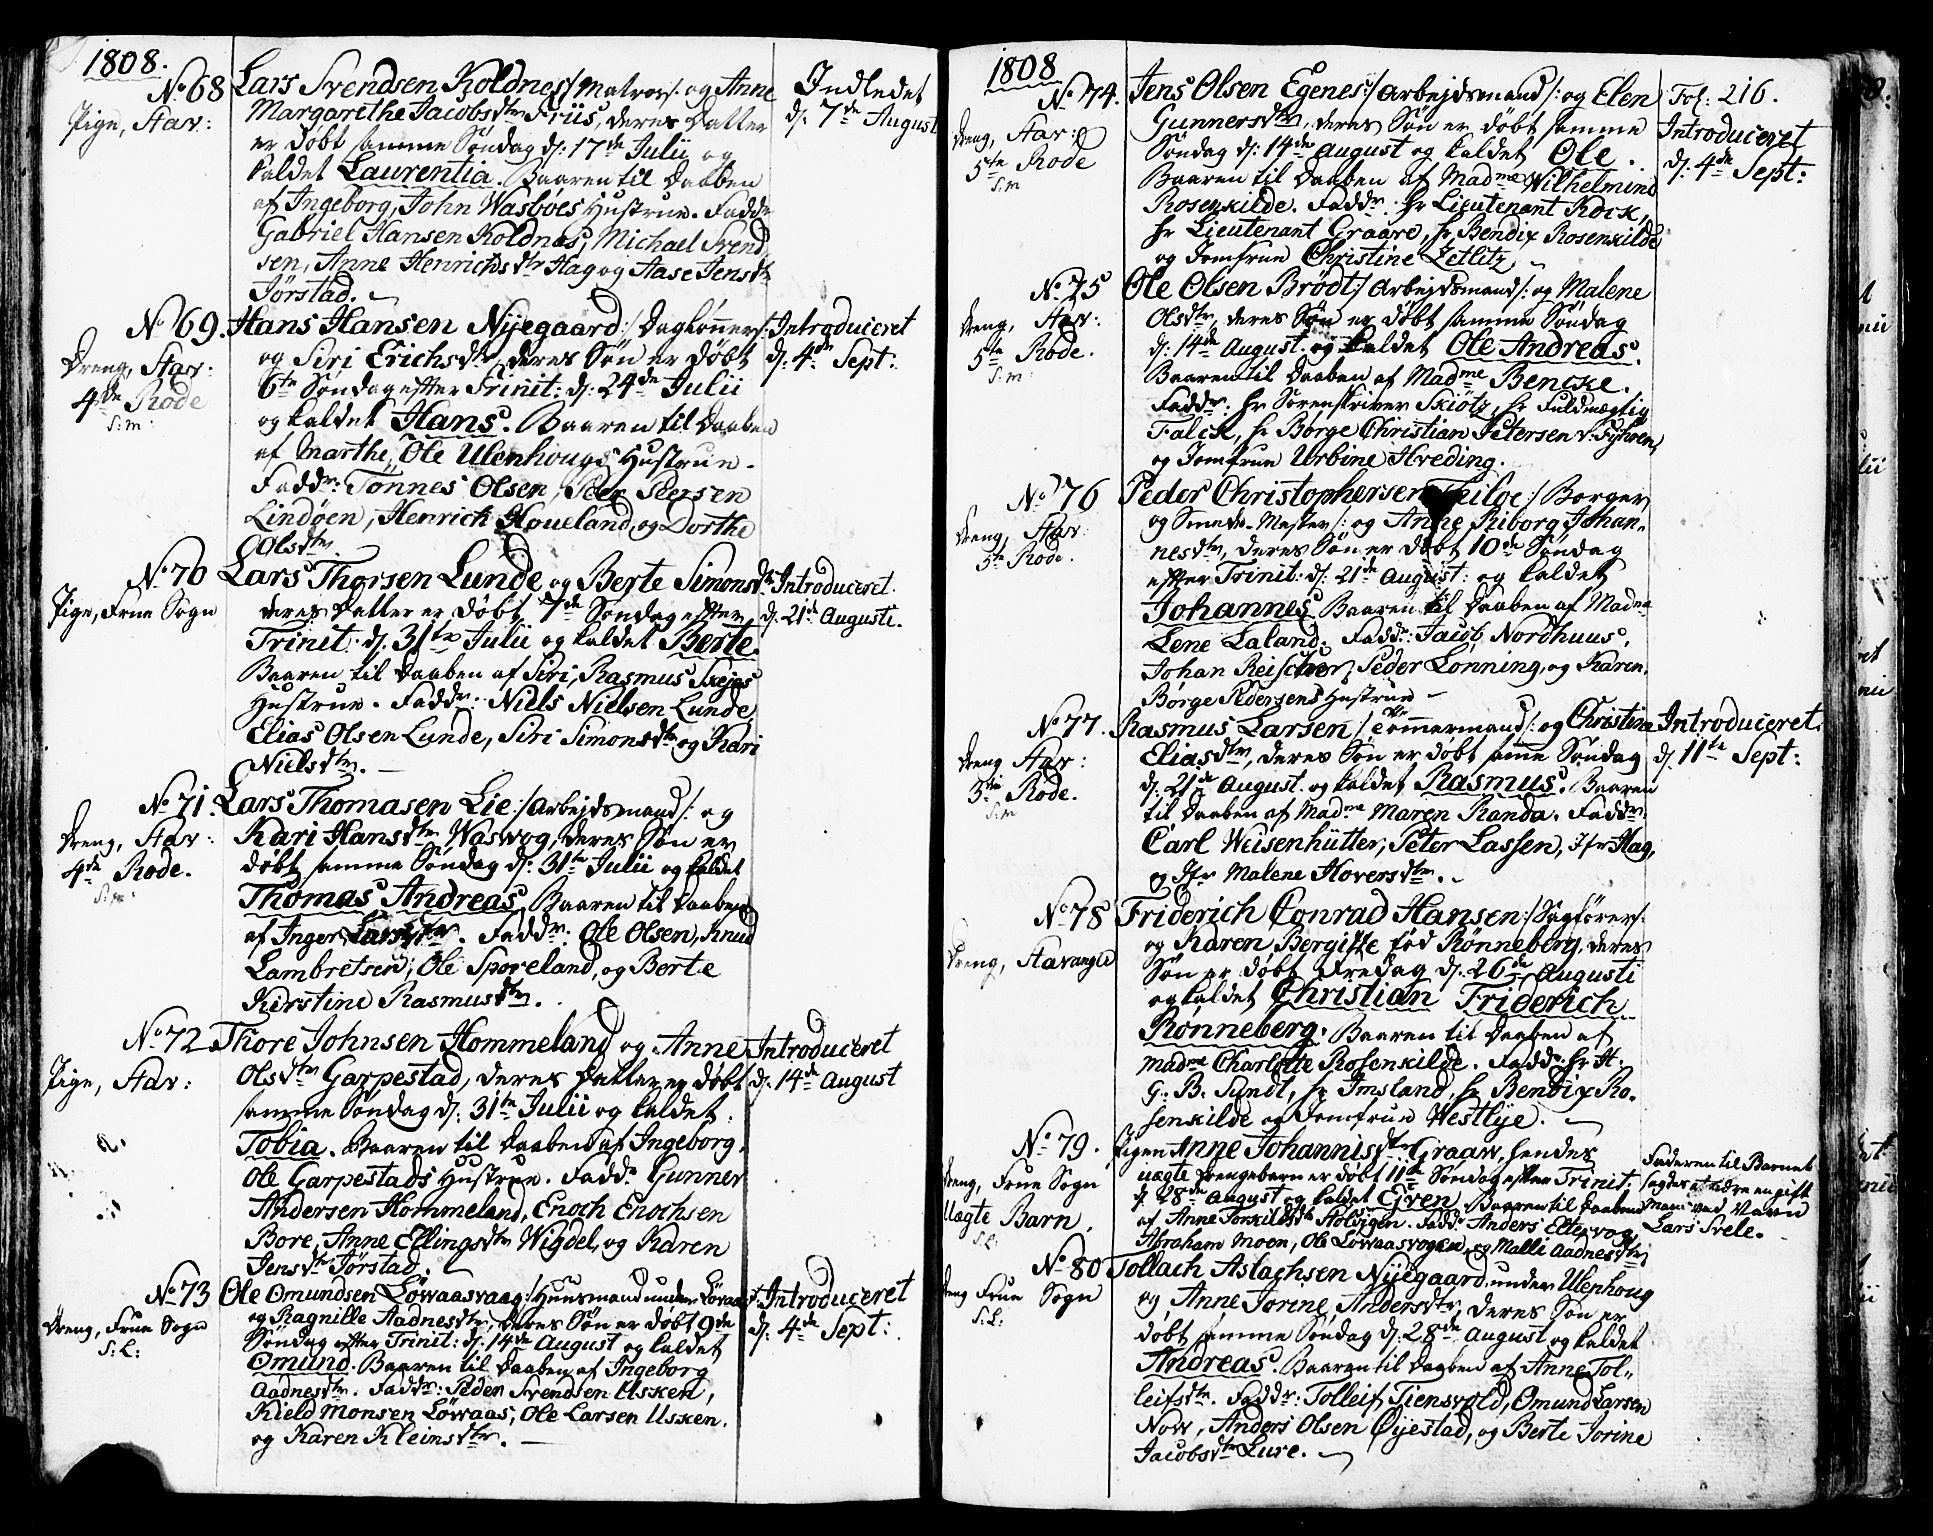 1808.
No 68
Pige, Stav:
Lars Svendsen Koldnes /: Matros :/ og Anne
Margarethe Jacobsdtr Friis, deres Datter
er døbt samme Søndag d: 17de Julii og
kaldet Laurentia. Baaren til Daaben
af Ingeborg, John Wasbøes Hustrue. Faddr
Gabriel Hansen Koldnes, Michael Svend
sen, Anne Henrichsdtr Hag og Aase Jensdtr
Jørstad.
Indledet
d: 7de August
No 69.
Dreng, Stav:
4de Rode
S: m:
Hans Hansen Nyegaard /: Daglønner :/
og Siri Erichsdtr, deres Søn er døbt
6te Søndag efter Trinit: d: 24de Julii
og kaldet Hans. Baaren til Daaben
af Marthe, Ole Ulenhougs Hustrue.
Faddr: Tønnes Olsen, Peer Peersen
Lindøen, Henrich Houeland, og Dorthe
Olsdtr.
Introduceret
d: 4de Sept:
No 70
Pige, Frue Sogn
Lars Thorsen Lunde og Berte Simonsdtr
deres Datter er døbt 7de Søndag efter
Trinit: d: 31te Julii og kaldet Berte.
Baaren til Daaben af Siri, Rasmus Skejes
Hustrue. Faddr: Niels Nielsen Lunde,
Elias Olsen Lunde, Siri Simonsdtr og Kari
Nielsdtr.
Introduceret
d: 21de Augusti.
No 71.
Dreng, Stav:
4de Rode.
S: m:
Lars Thomasen Lie /: Arbejdsmand :/ og
Kari Hansdtr Waswog, deres Søn er
døbt samme Søndag d: 31te Julii og kaldet
Thomas Andreas. Baaren til Daaben
af Inger Larsdtr. Faddr: Ole Olsen, Knud
Lambretsen, Ole Sporeland, og Berte
Kirstine Rasmusdtr.
No 72
Pige, Stav:
Thore Johnsen Hommeland og Anne
Olsdtr Garpestad, deres Datter er døbt
samme Søndag d: 31te Julii og kaldet
Tobia. Baaren til Daaben af Ingeborg,
Ole Garpestads Hustrue. Faddr Gunner
Andersen Hommeland, Enoch Enochsen
Bore, Anne Ellingsdtr Wigdel, og Karen
Jensdtr Jørstad.
Introduceret
d: 14de August
No 73
Dreng, Frue Sogn
S: L:
Ole Omundsen Løwaasvaag /: Huusmand under Løvaas :/
og Ragnille Aadnesdtr, deres Søn er døbt 9de
Søndag efter Trinit: d: 14de August og kaldet
Omund. Baaren til Daaben af Ingeborg
Aadnesdtr. Faddr: Peder Svendsen Usken,
Kield Monsen Løwaas, Ole Larsen Usken.
og Karen Kleinsdtr.
Introduceret
d: 4de Sept:
1808
No 74.
Dreng, Stav:
5te Rode
S: m
Jens Olsen Egenes /: Arbejdsmand :/ og Elen
Gunnersdtr, deres Søn er døbt samme
Søndag d: 14de August og kaldet Ole.
Baaren til Daaben af Madme Wilhelmine
Rosenkilde. Faddr: Hr Lieutenant Kock,
Hr Lieutenant Graare, Hr Bendix Rosenkilde
og Jomfrue Christine Zetlitz
Fol: 216.
Introduceret
d: 4de Sept:
No 75
Dreng, Stav:
5te Rode.
S: m:
Ole Olsen Brødt /: Arbejdsmand :/ og Malene
Olsdtr, deres Søn er døbt samme Søndag
d: 14de August og kaldet Ole Andreas.
Baaren til Daaben af Madme Bencke.
Faddr: Hr Sorenskriver Skiøtz, Hr Fuldmægtig
Falck, Hr Børge Christian Petersen v: Fyhren,
og Jomfrue Urbine Hreding.
No 76
Dreng, Stav:
5te Rode.
Peder Christophersen Thiloe /: Borger
og Smede-Mester :/ og Anne Riborg Johan-
nesdtr, deres Søn er døbt 10de Søndag
efter Trinit: d: 21de August: og kaldet
Johannes. Baaren til Daaben af Madme
Lene Laland. Faddr: Jacob Nordhuus,
Johan Reischer, Peder Lønning, og Karen,
Børge Pedersens Hustrue
No 77.
Dreng Stav:
3die Rode.
S: m
Rasmus Larsen /: Tømmermand :/ og Christine
Eliasdtr, deres Søn er døbt samme Søndag
d: 21de August og kaldet Rasmus. Baaren
til Daaben af Madme Maren Randa. Faddr
Carl Weisenhütter, Peter Lassen, Jfr Hag,
og Jfr Malene Hoversdtr.
Introduceret.
d: 11te Sept:
No 78
Dreng, Stavanger
Friderich Conrad Hansen /: Sagfører :/
og Karen Bergitte fød Rønneberg, deres
Søn er døbt Fredag d: 26de Augusti
og kaldet Christian Friderich
Rønneberg. Baaren til Daaben af
Madme Charlotte Rosenkilde. Faddr: Hr H:
G: B: Sundt, Hr Imsland, Hr Bendix Ro-
senkilde og Jomfrue Westlye.
No 79.
Dreng, Frue Sogn
Uægte Barn.
S: L:
Pigen Anne Johannisdtr Graaw, hendes
uægte Drengebarn er døbt 11te Søndag efter Trinit:
d: 28de August og kaldet Gren. Baaren til Daaben
af Anne Torkildsdtr Stolsgen. Faddr Anders Eltervog,
Abraham Moen, Ole Løwaasvogen, og Malli Aadnesdtr
Faderen til Barnet
sagdes at være en gift
Mand ved Navn
Lars Svele.
No 80
Dreng Frue Sogn
S: L:
Tollach Aslachsen Nyegaard under Ulenhoug
og Anne Jorine Andersdtr, deres Søn er
døbt samme Søndag d: 28de August og kaldet
Andreas. Baaren til Daaben af Anne Tol-
leifsdtr. Faddr: Tolleif Tiensvold, Omund Larsen
Now, Anders Olsen Øyestad, og Berte Jorine
Jacobsdtr Lure.